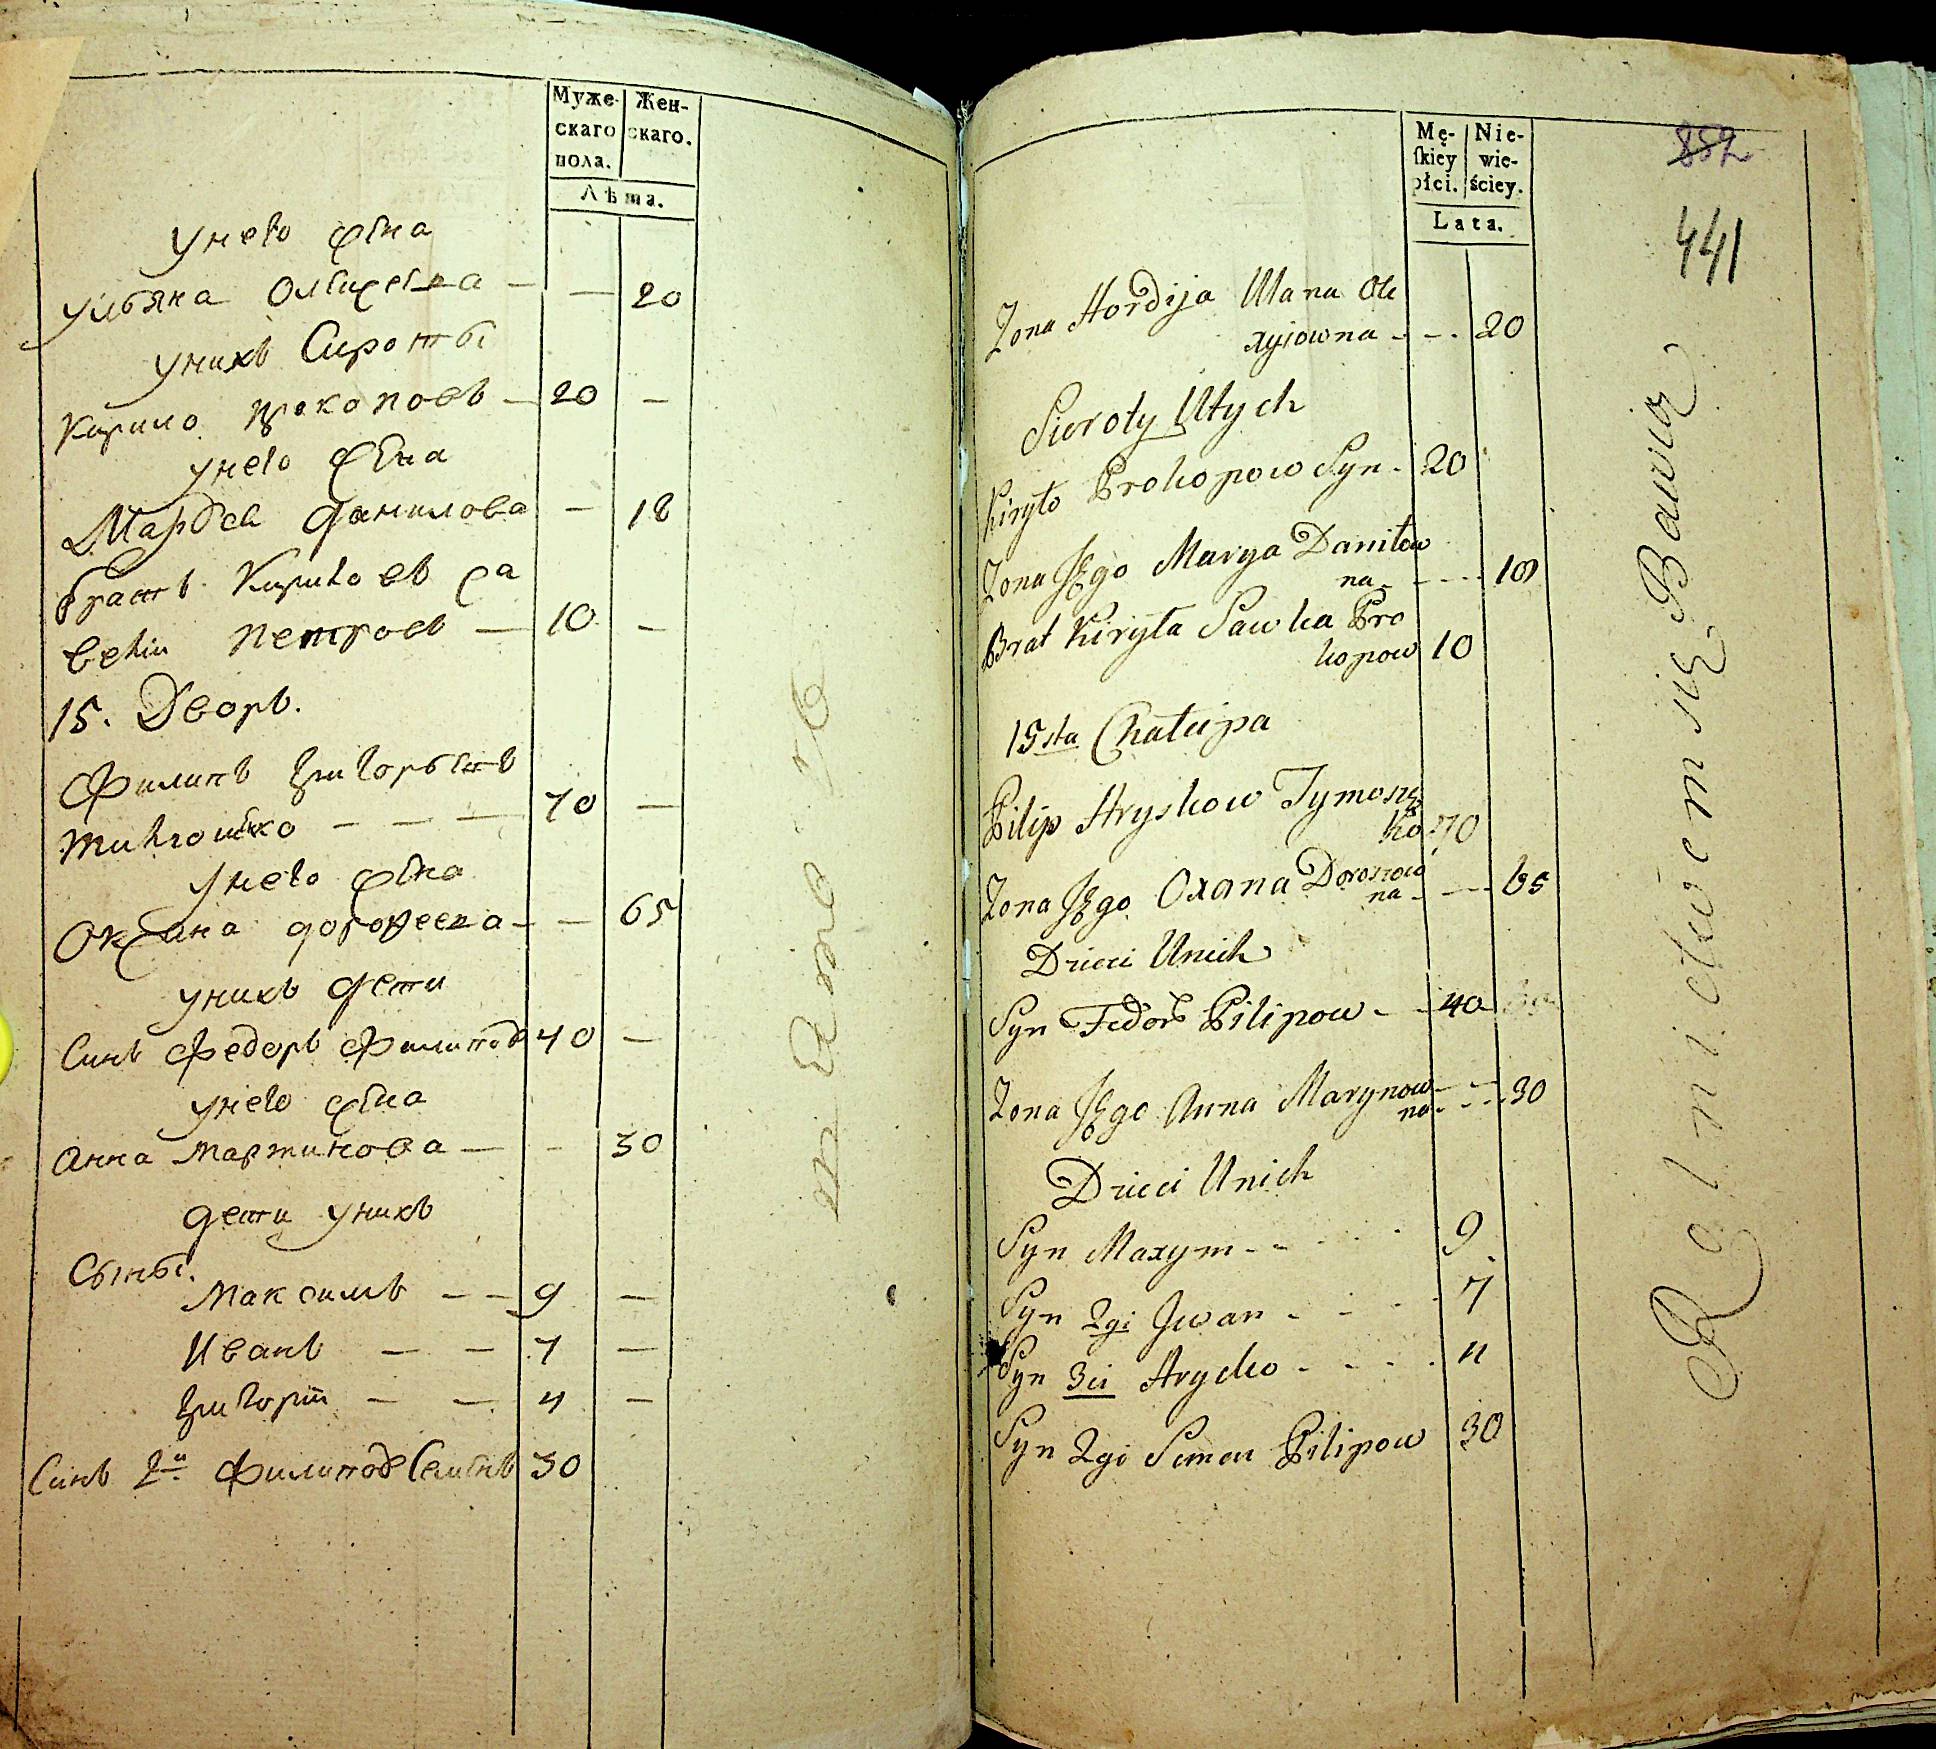 Муже-
скаго
пола.
Жен-
скаго.
Лѣта.
унего жена
Ульяна Олексѣевна — — 20
унихъ Сироты
Кирило Прокоповъ — 20 —
унего жена
Марья данилова — 18
братъ Кириловъ Са
велiи Петровъ — 10 —
15. Дворъ.
Филипъ Григорьевъ
тимошенко — — — 70 —
унего жена
Оксана дорофеева — — 65
унихъ дети
Синъ Федоръ Филиповъ 40 —
унего жена
Анна Мартинова — - 30
дети унихъ
Сыны.
Максимъ — — 9 —
Иванъ — — 7 —
Григорiй — — 4 —
Синъ 2й Филиповъ Семенъ 30
Mę-
ſkiey
płci.
Nie-
wie-
ściey.
Lata.
852
441
Żona Hordija Ulana Ole
xyjowna - - - 20
Sieroty Utych
Kiryło Prokopow Syn - 20
Żona Jego Marya Daniłow
na - - - - 18
Brat Kiryła Sawka Pro
kopow 10
15sta Chałupa
Pilip Hryskow Tymosz
ko 70
Żona Jego Oxana Doroszow
na - - - 65
Dzieci Unich
Syn Fedor Pilipow - - 40
Żona Jego Anna Martynow
na - - - 30
Dzieci Unich
Syn Maxym - - - - - 9
Syn 2gi Jwan - - - - 7
Syn 3ci Hryćko - - - - 4
Syn 2gi Semen Pilipow 30
Rolnictwem się Bawią